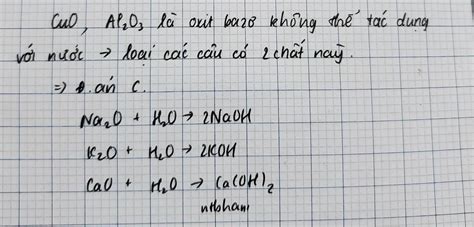 CuO, Al₂O₃ là oxit bazơ không thể tác dụng
với nước → loại các câu có 2 chất này.
=> đ.án C.
Na₂O + H₂O → 2NaOH
K₂O + H₂O → 2KOH
CaO + H₂O → Ca(OH)₂